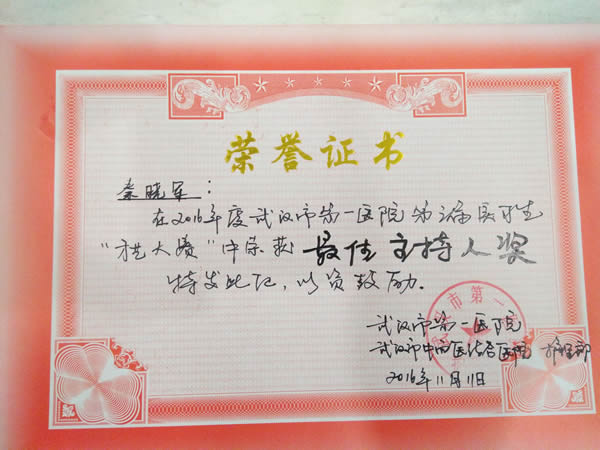 荣誉证书
秦晓军：
在2016年度武汉市第一医院 医疗
大赛"中荣获 最佳主持人奖
特发此证，以资鼓励。
市第一
武汉市第一医院
武汉市中西医结合医院 护理部
2016年11月11日